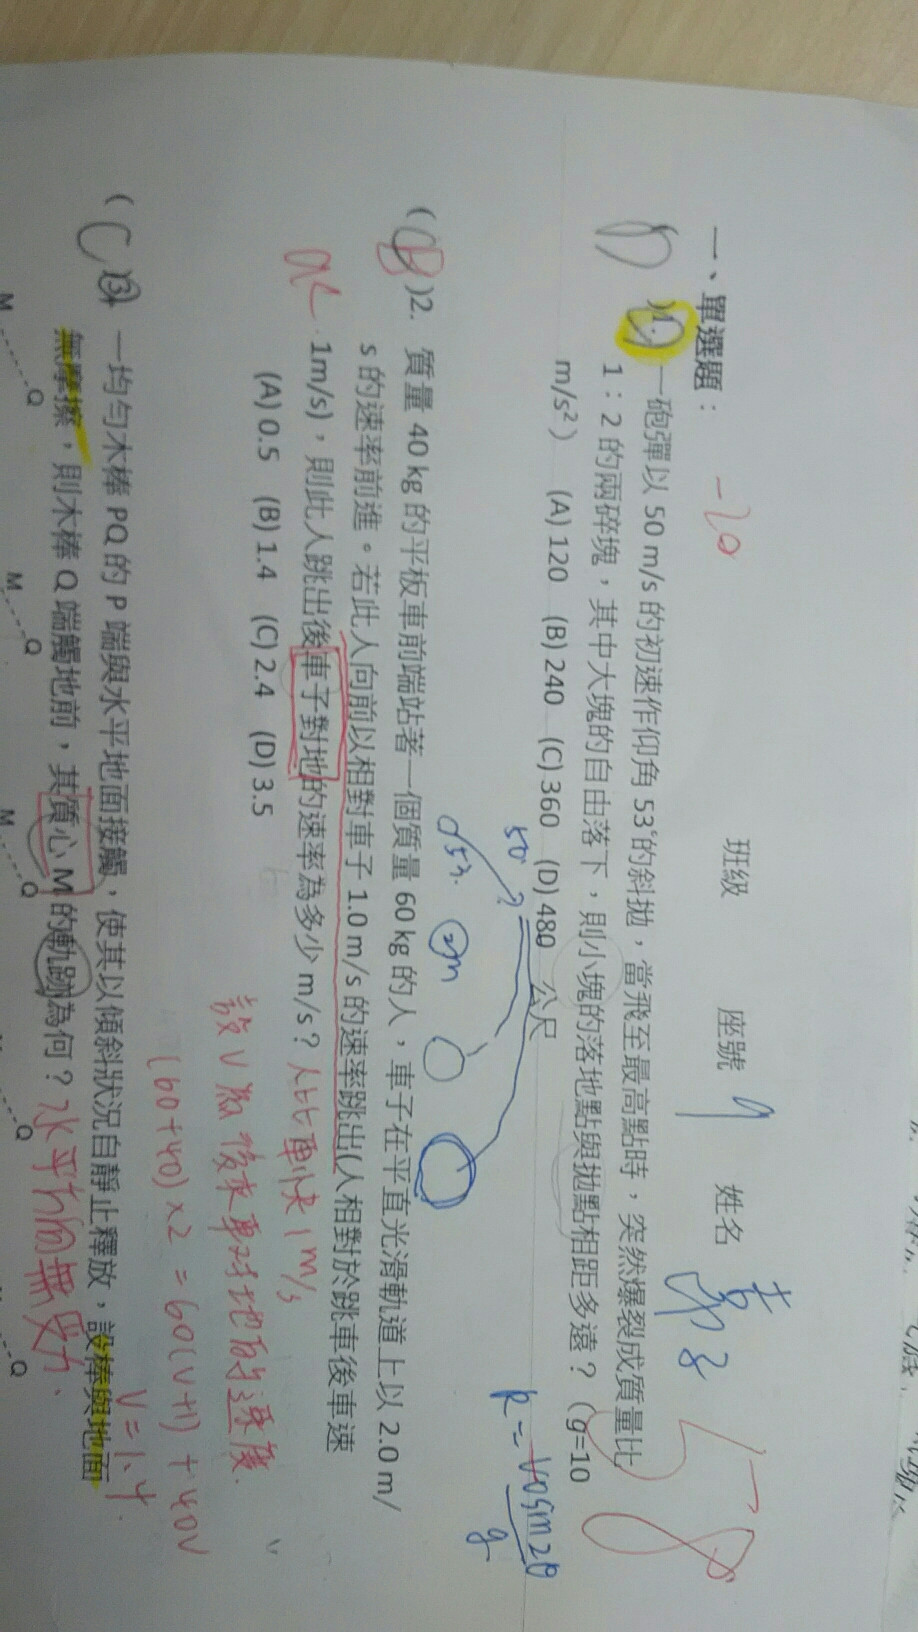 班級 座號 9 姓名
58
一、單選題： -20
(D)1. 一砲彈以 50 m/s 的初速作仰角 53°的斜拋，當飛至最高點時，突然爆裂成質量比
1：2 的兩碎塊，其中大塊的自由落下，則小塊的落地點與拋點相距多遠？（g=10
m/s²） (A)120 (B)240 (C)360 (D)480 公尺
50
53°
2m
R=
(B)2. 質量 40 kg 的平板車前端站著一個質量 60 kg 的人，車子在平直光滑軌道上以 2.0 m/
s 的速率前進。若此人向前以相對車子 1.0 m/s 的速率跳出(人相對於跳車後車速
1m/s)，則此人跳出後車子對地的速率為多少 m/s？ 人比車快 1 m/s
(A) 0.5 (B) 1.4 (C) 2.4 (D) 3.5
設 V 為後來車對地的速度
(60+40)×2 = 60(V+1) + 40V
V=1.4
(C)3. 一均勻木棒 PQ 的 P 端與水平地面接觸，使其以傾斜狀況自靜止釋放，設棒與地面
無摩擦，則木棒 Q 端觸地前，其質心 M 的軌跡為何？ 水平方向無受力.
M Q M Q M Q Q Q